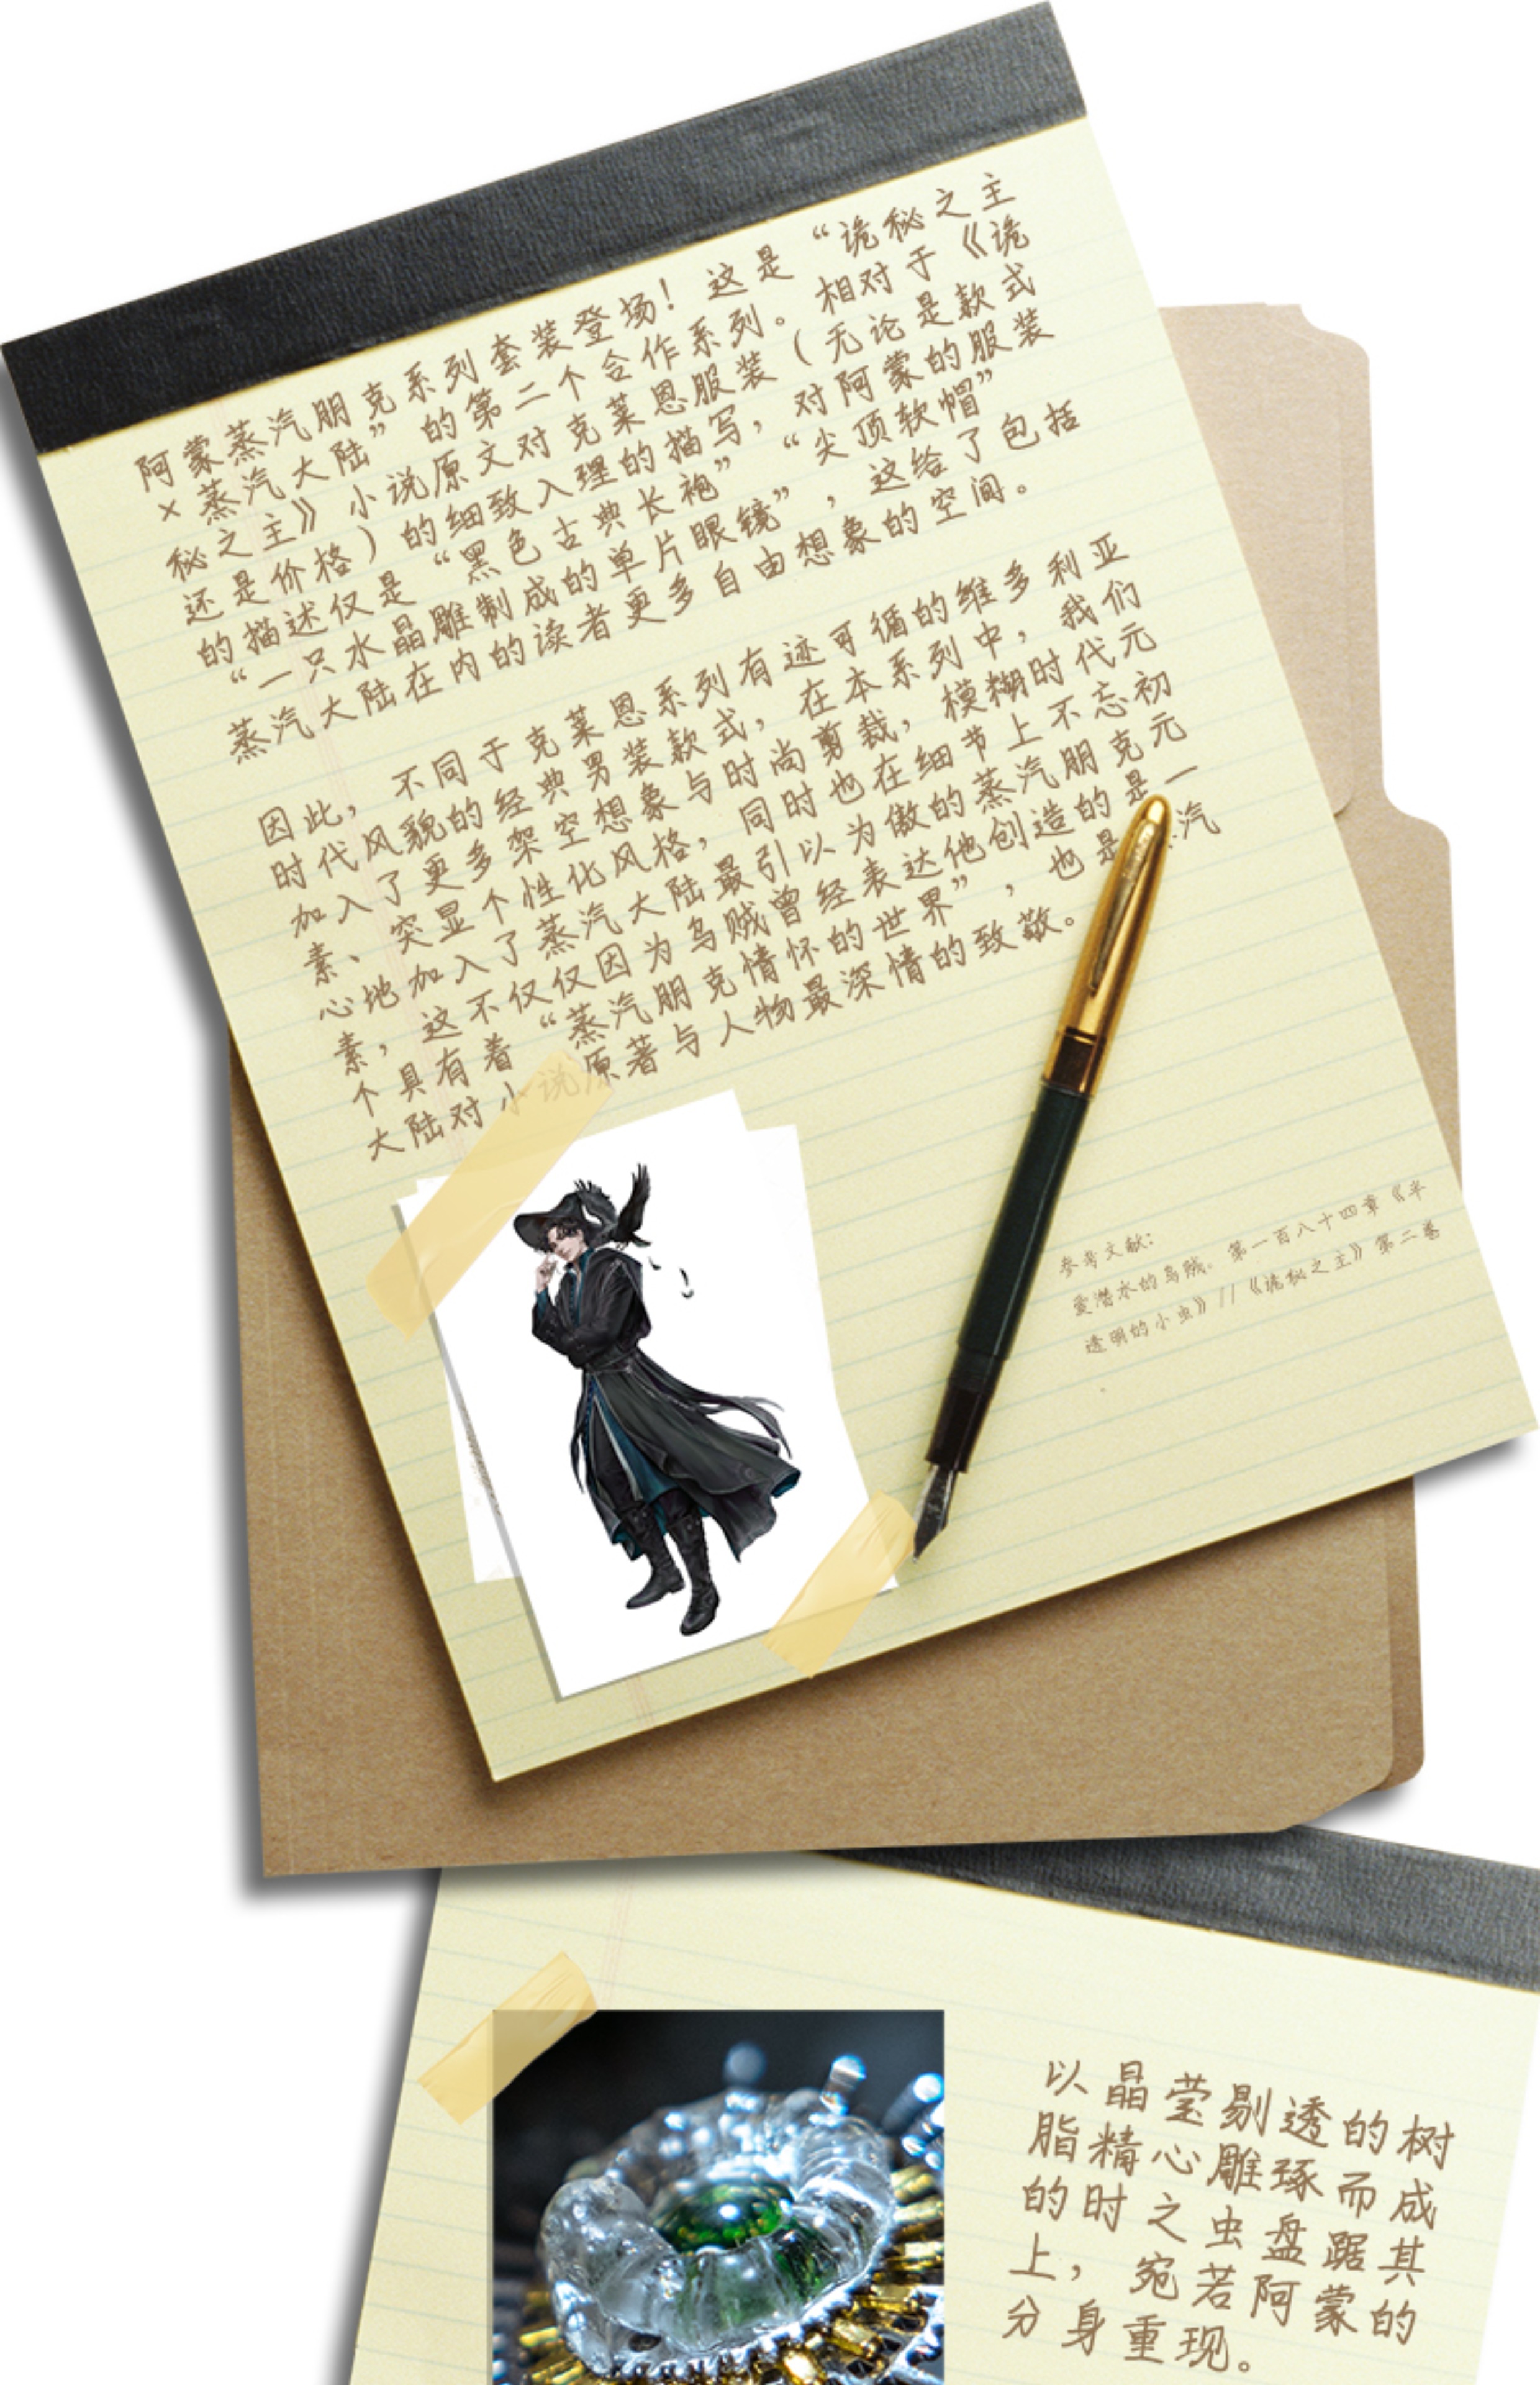 阿蒙蒸汽朋克系列套装登场！这是“诡秘之主
×蒸汽大陆”的第二个合作系列。相对于《诡
秘之主》小说原文对克莱恩服装（无论是款式
还是价格）的细致入理的描写，对阿蒙的服装
的描述仅是“黑色古典长袍”“尖顶软帽”
“一只水晶雕制成的单片眼镜”，这给了包括
蒸汽大陆在内的读者更多自由想象的空间。
因此，不同于克莱恩系列有迹可循的维多利亚
时代风貌的经典男装款式，在本系列中，我们
加入了更多架空想象与时尚剪裁，模糊时代元
素、突显个性化风格，同时也在细节上不忘初
心地加入了蒸汽大陆最引以为傲的蒸汽朋克元
素，这不仅仅因为乌贼曾经表达他创造的是一
个具有着“蒸汽朋克情怀的世界”，也是汽
大陆对小说原著与人物最深情的致敬。
参考文献：
爱潜水的乌贼。第一百八十四章《半
透明的小虫》//《诡秘之主》第二卷
以晶莹剔透的树
脂精心雕琢而成
的时之虫盘踞其
上，宛若阿蒙的
分身重现。